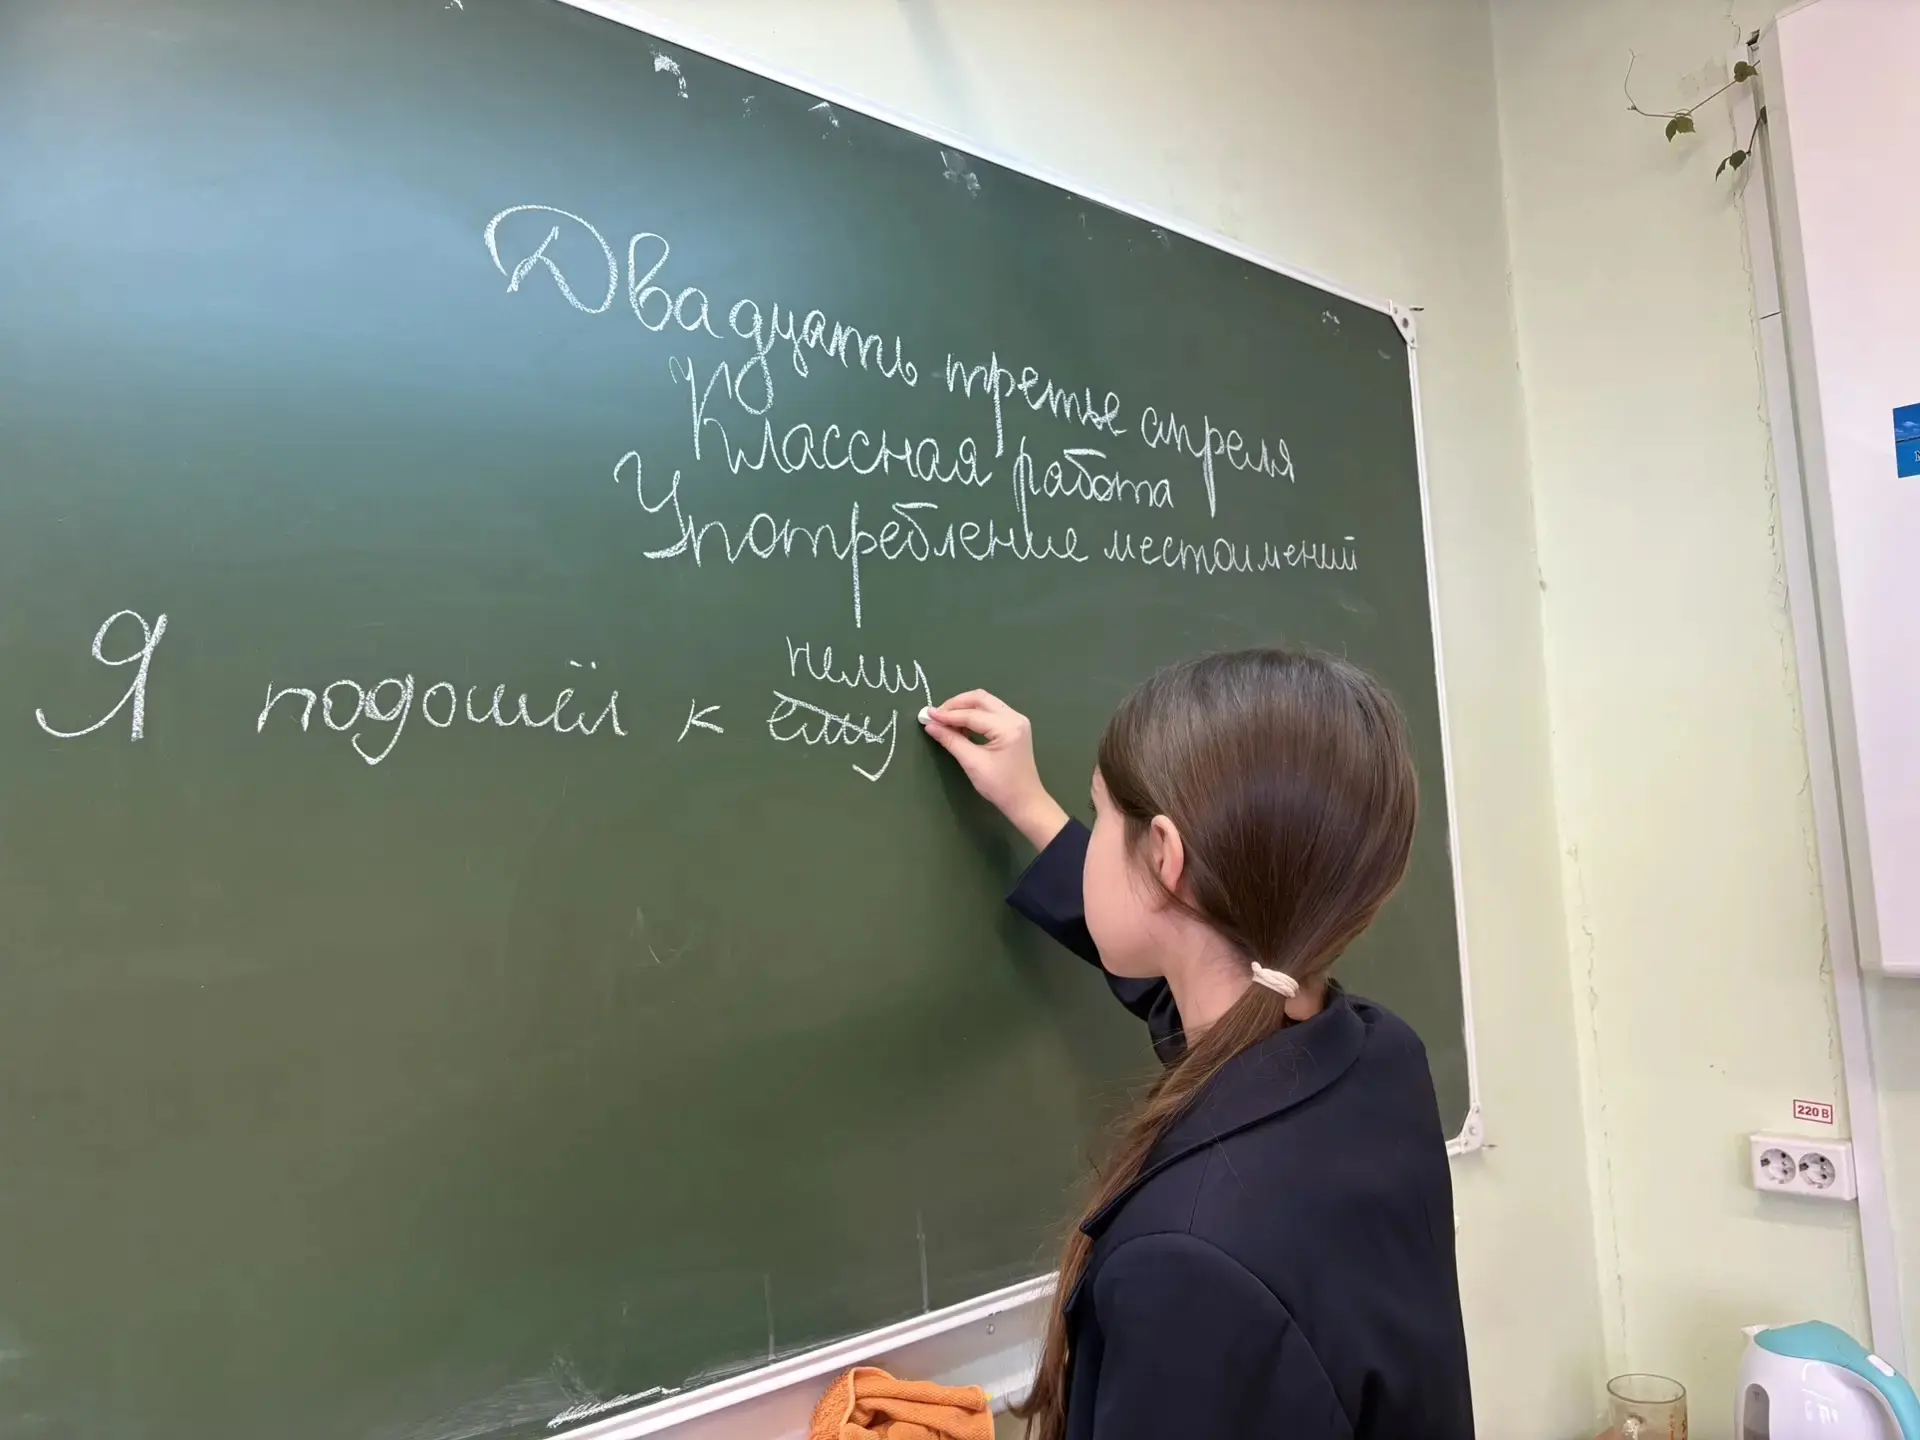 Двадцать третье апреля
Классная работа
Употребление местоимений
нему
Я подошёл к ему
220 В